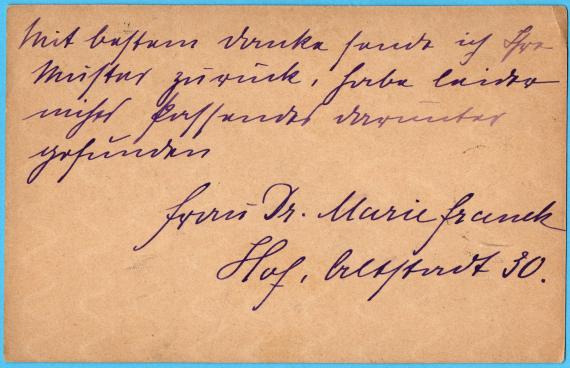 Mit bestem Danke sende ich Ihre
Muster zurück, habe leider
nichts Passendes darunter
gefunden
Frau Dr. Marie Franck
Hof, Altstadt 30.